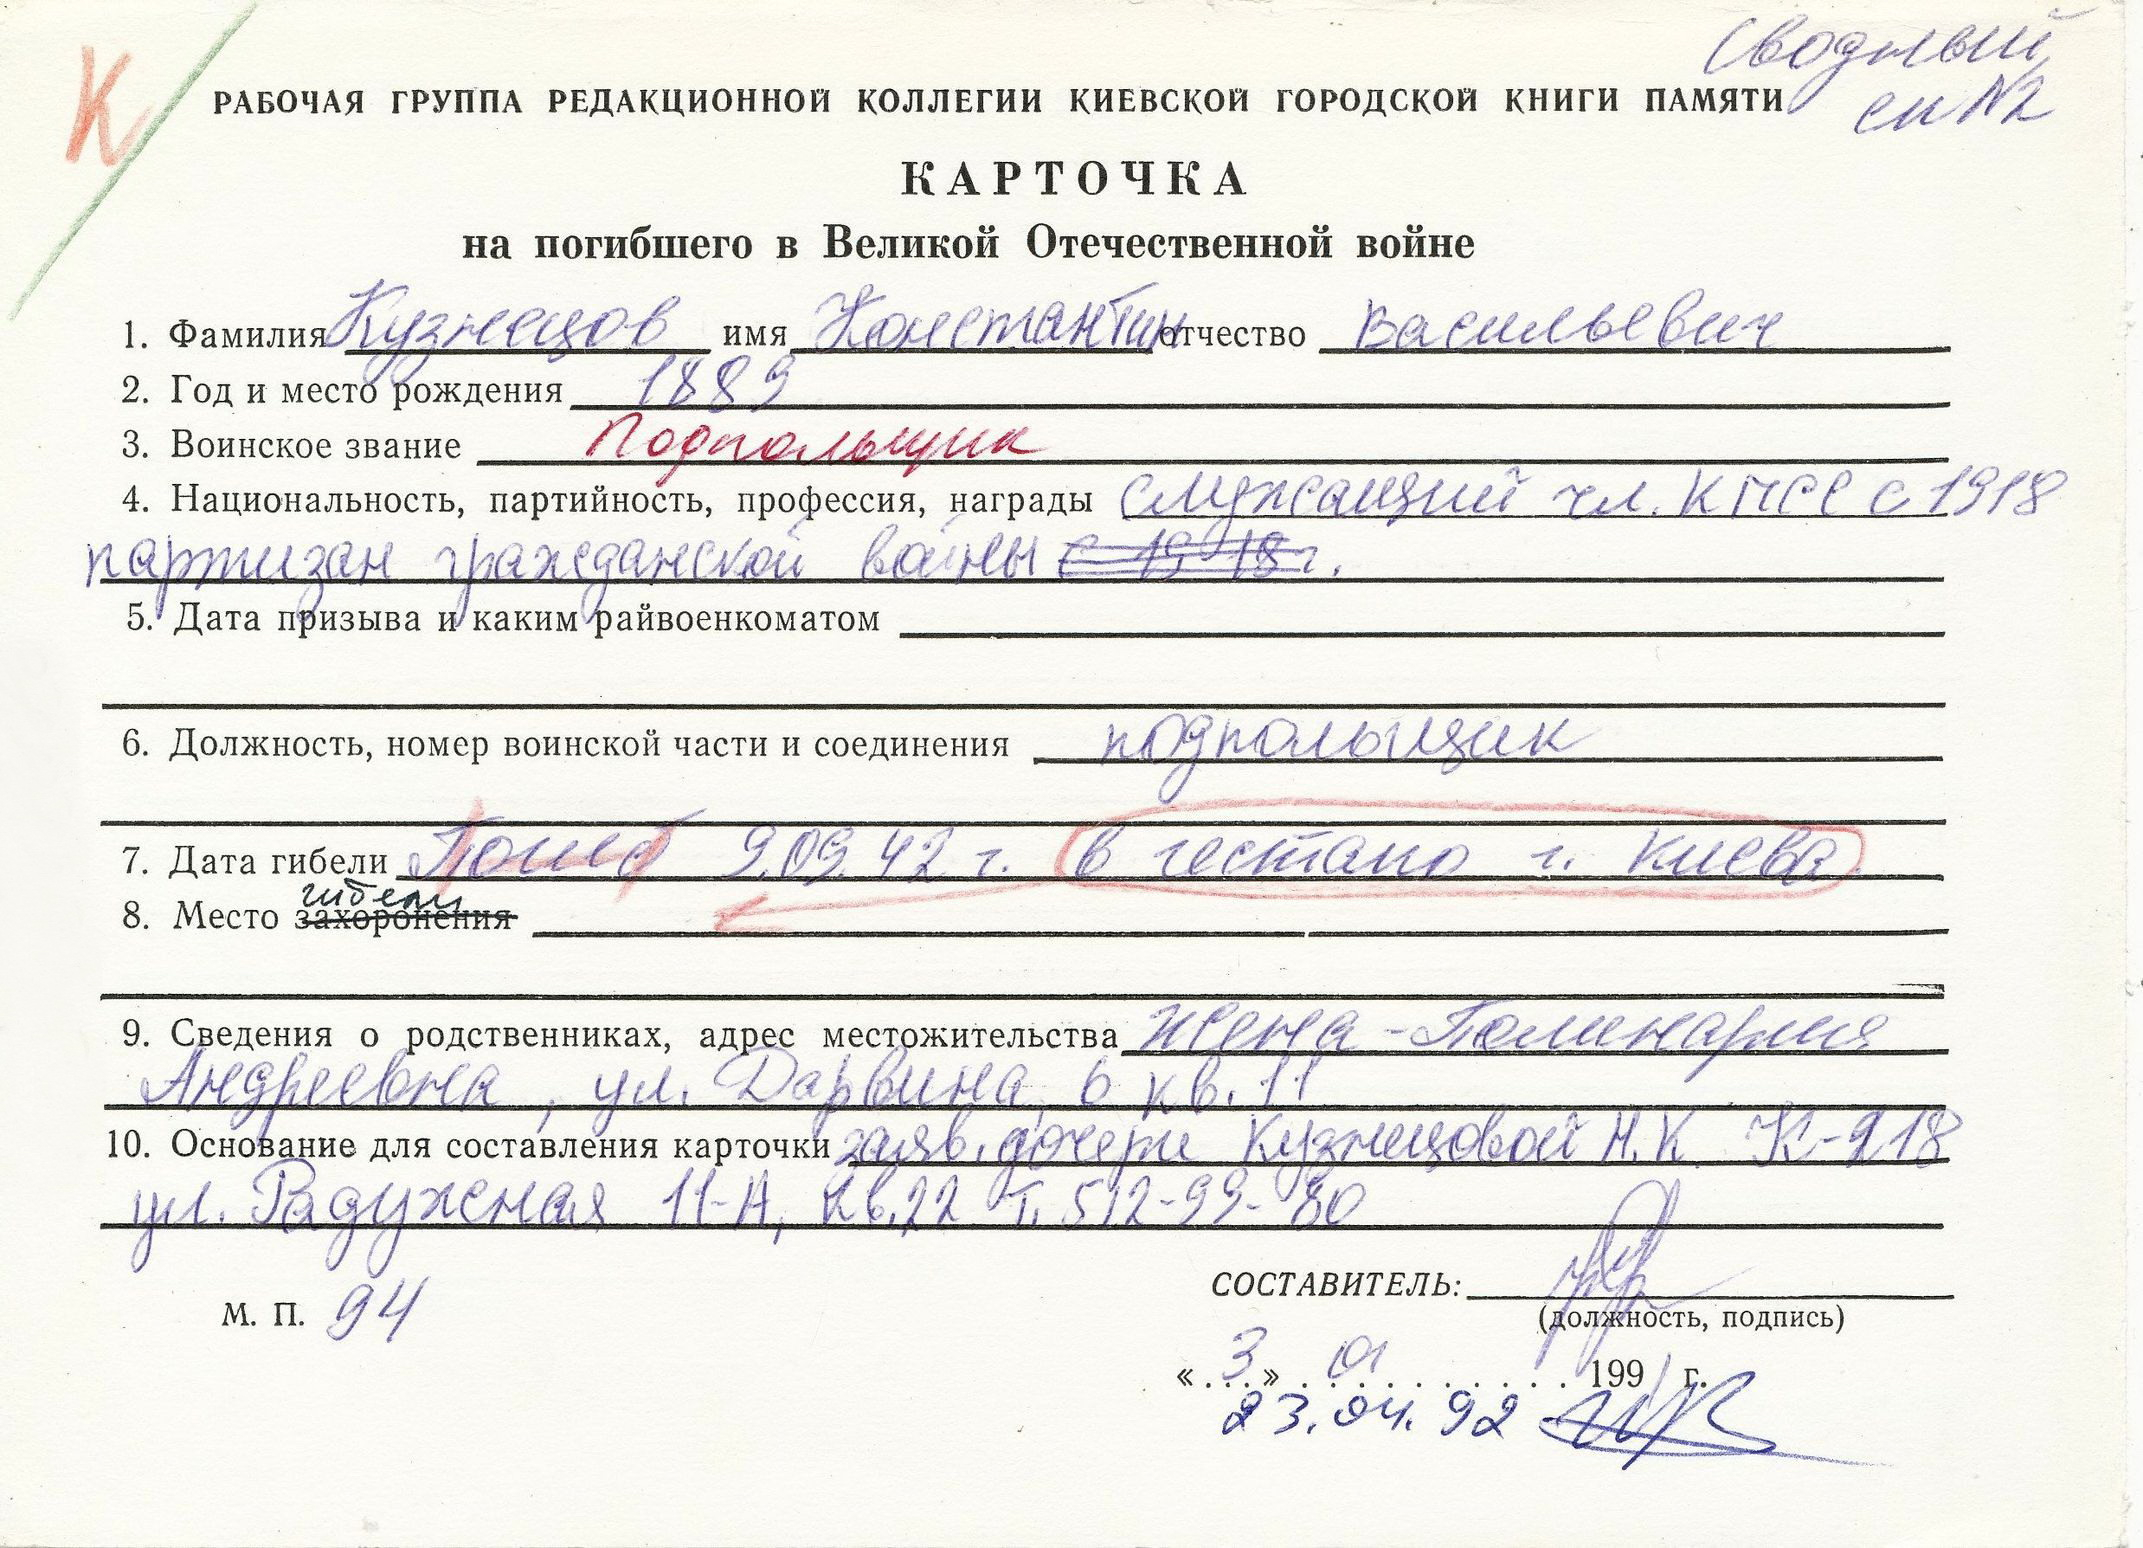 Сводный
сп №2
К
РАБОЧАЯ ГРУППА РЕДАКЦИОННОЙ КОЛЛЕГИИ КИЕВСКОЙ ГОРОДСКОЙ КНИГИ ПАМЯТИ
КАРТОЧКА
на погибшего в Великой Отечественной войне
1. Фамилия Кузнецов имя Константин отчество Васильевич
2. Год и место рождения 1889
3. Воинское звание Подпольщик
4. Национальность, партийность, профессия, награды служащий чл. КПСС с 1918
партизан гражданской войны с 1918 г.
5. Дата призыва и каким райвоенкоматом
6. Должность, номер воинской части и соединения подпольщик
7. Дата гибели Погиб 9.09.42 г. в гестапо г. Киева
гибели
8. Место захоронения
9. Сведения о родственниках, адрес местожительства жена - Полинария
Андреевна, ул. Дарвина, 6 кв. 11
10. Основание для составления карточки заяв. дочери Кузнецовой Н.К. К-218
ул. Радужная 11-А, кв. 22 т. 512-99-80
СОСТАВИТЕЛЬ:
М. П. 94
(должность, подпись)
«3» 01 1991 г.
23.04.92